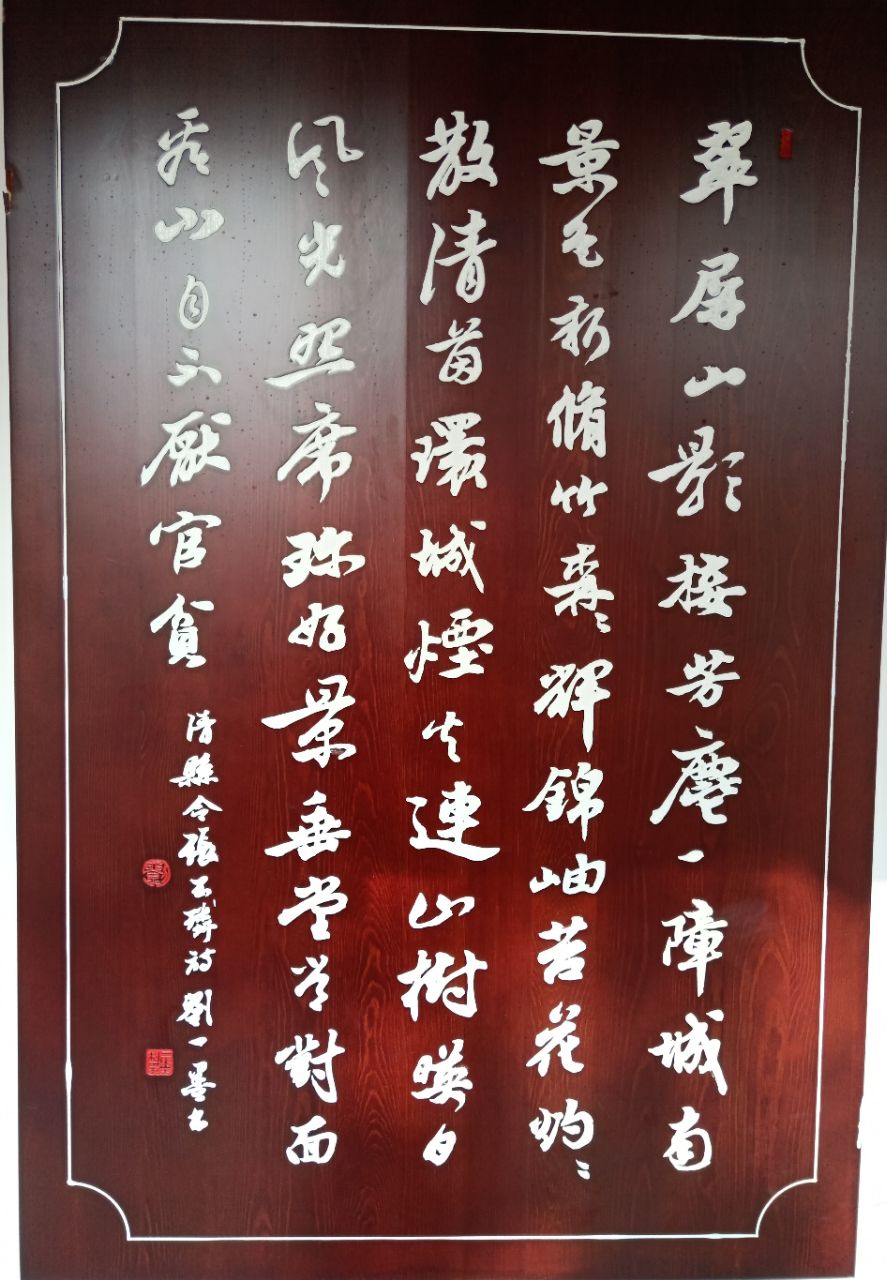 翠屏山影接芳塵一障城南
景色新脩竹森々輝錦岫苔花灼々
散清茵環城煙火連山樹暎日
風光照席珍好景垂堂常對面
看山自不厭官貧
清縣令張瑋詩劉一墨書